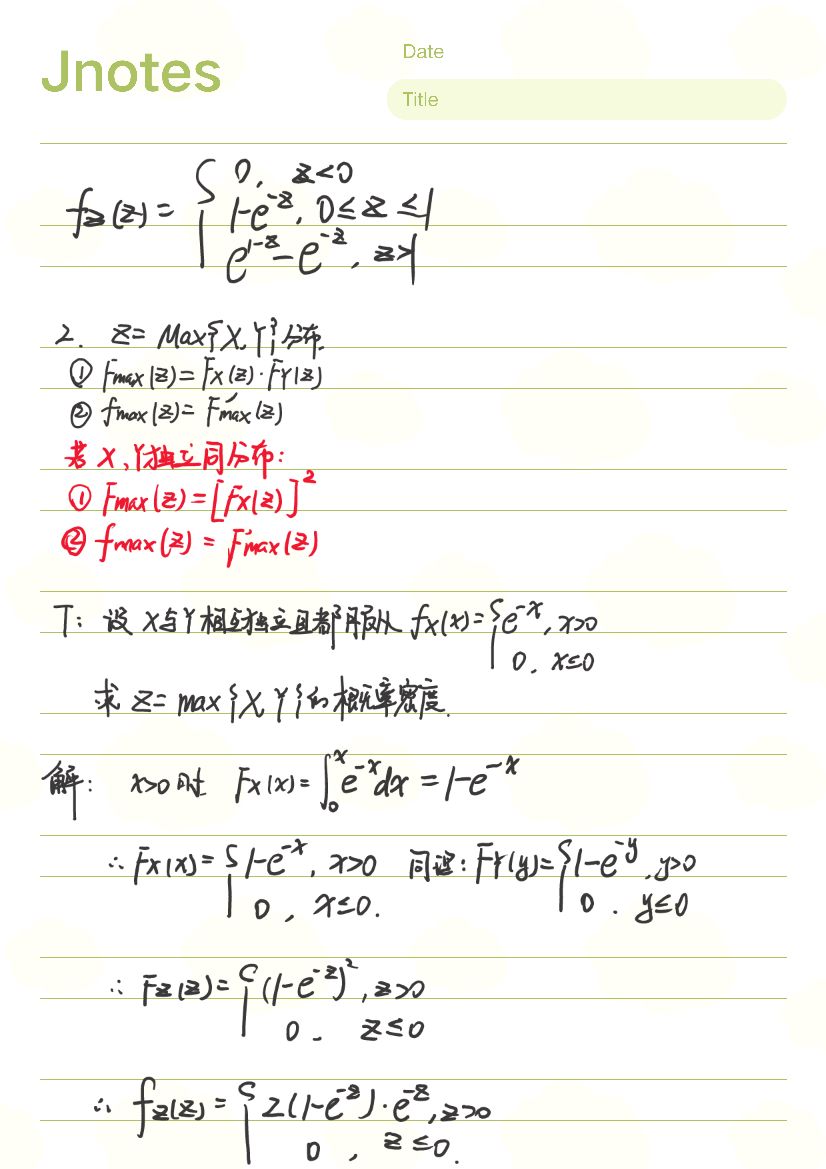 Jnotes
Date
Title
fz(z) = { 0, z<0
1-e^{-z}, 0≤z≤1
e^{1-z}-e^{-z}, z>1
2. Z= Max{X,Y}分布.
① Fmax(z)=Fx(z)·FY(z)
② fmax(z)=F'max(z)
若X,Y独立同分布:
① Fmax(z)=[Fx(z)]²
② fmax(z) = F'max(z)
T: 设X与Y相互独立且都服从 fx(x)={ e^{-x}, x>0
0, x≤0
求 Z= max{X,Y}的概率密度.
解: x>0时 Fx(x)=∫₀ˣ e^{-x}dx = 1-e^{-x}
∴ Fx(x)= { 1-e^{-x}, x>0 同理: FY(y)= { 1-e^{-y}, y>0
0, x≤0. 0. y≤0
∴ Fz(z)= { (1-e^{-z})², z>0
0. z≤0
∴ fz(z) = { 2(1-e^{-z})·e^{-z}, z>0
0, z≤0.